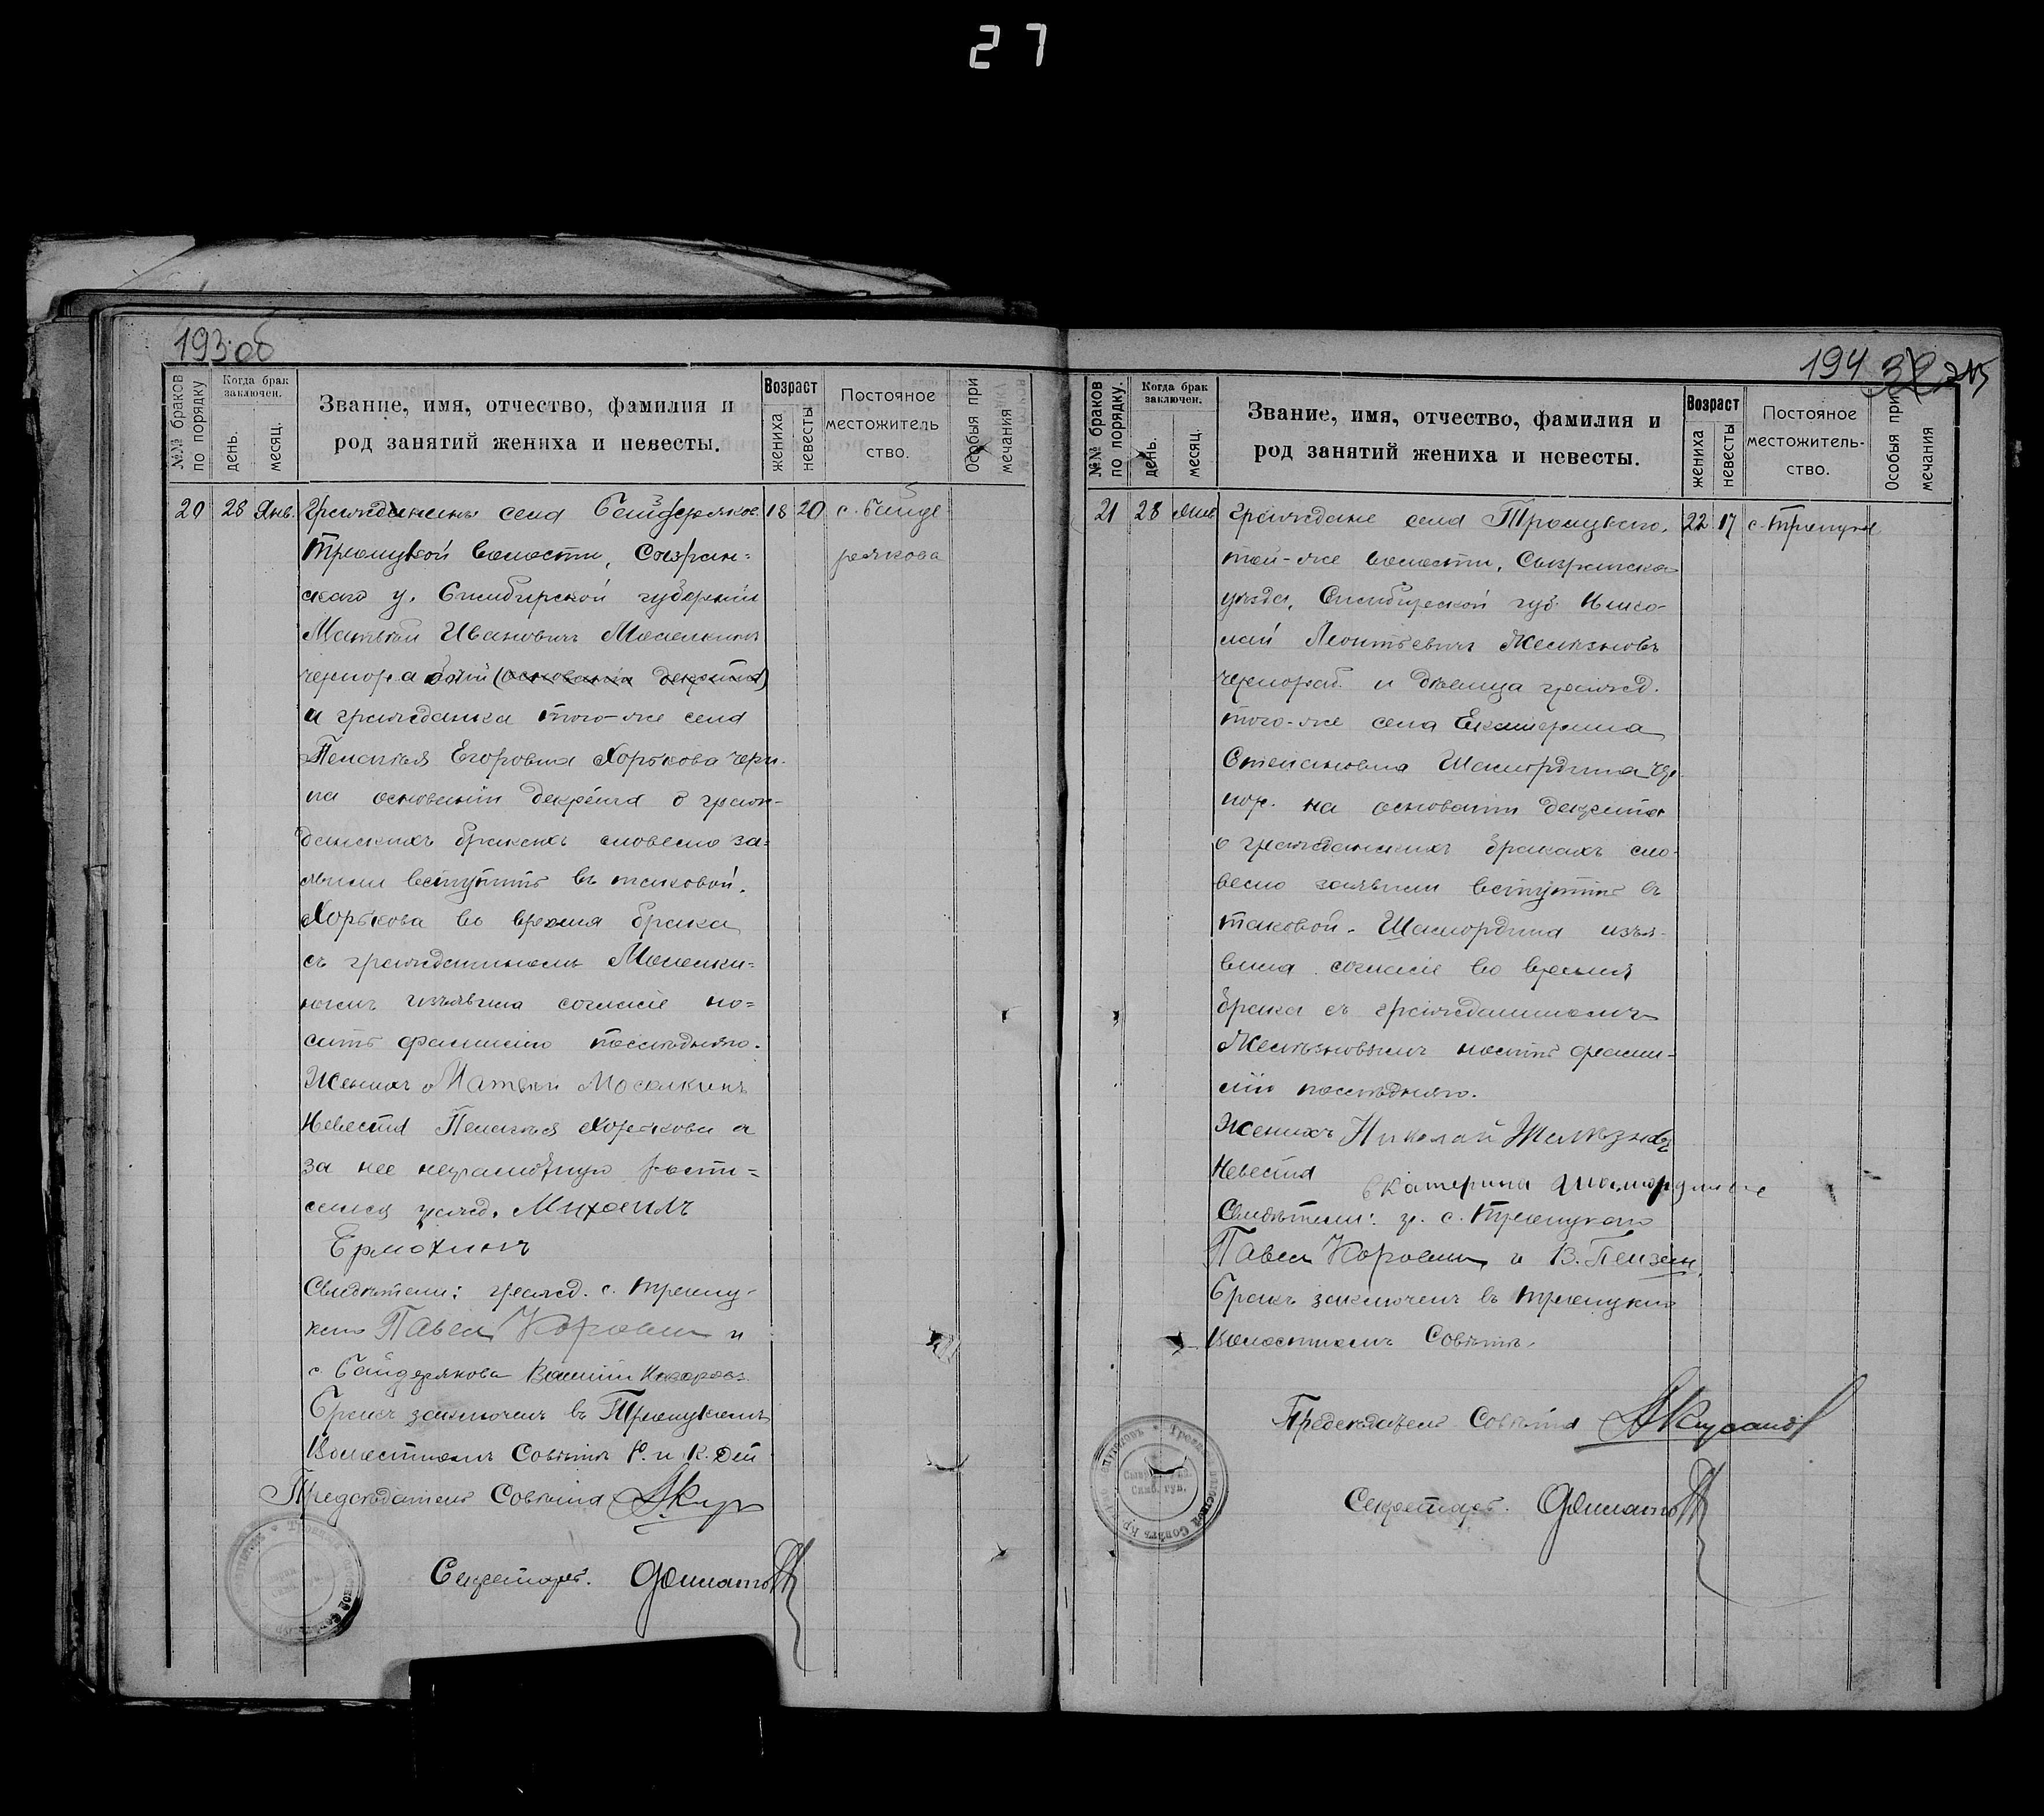 27
193 об
№№ браков по порядку
Когда брак заключен.
день.
месяц.
Звание, имя, отчество, фамилия и
род занятий жениха и невесты.
Возраст
жениха
невесты
Постояное
местожитель
ство.
Особыя при
мечания
20 28 Янв. Гражданинъ села Байдеряков. 18 20 с. Байде
Троицкой волости, Сызран= рякова
скаго у. Симбирской губернии
Матвей Иванович
чернорабочий (основания декрета)
и гражданка того-же села
Пелагея Егоровна Хорькова черн.
на основании декрета о граж-
данскихъ бракахъ словесно за=
явили вступить въ таковой.
Хорькова во время брака
съ гражданиномъ
изъявила согласие но=
сить фамилию последняго.
Женихъ Матвей Мосалкинъ
Невеста Пелагея Хорькова а
за нее неграмотную роспи=
сался гражд. Михаилъ
Ермохинъ
Свидетели: гражд. с. Троиц-
каго Павел и
с Байдерякова Василий
Бракъ заключенъ въ Троицкомъ
Волостномъ Совете Р. и К. Деп
Председатель Совета
Секретарь.
194
№№ браков по порядку.
Когда брак заключен.
день.
месяц.
Звание, имя, отчество, фамилия и
род занятий жениха и невесты.
Возраст
жениха
невесты
Постояное
местожитель-
ство.
Особыя при
мечания
21 28 Янв Граждане села Троицкаго, 22 17 с. Троицк
той-же волости, Сызранска
уезда, Симбирской губ. Нико-
лай Леонтьевич Железновъ
чернораб. и девица гражд.
того-же села Екатерина
Степановна Шамордина Че
нор. на основании декрета
о гражданскихъ бракахъ сло-
весно заявили вступить в
таковой. Шамордина изъя-
вила согласие во время
брака съ гражданиномъ
Железновымъ носить фами-
лию последняго.
Женихъ Николай Железновъ
Невеста Екатерина Шамордина
Свидетели: гр. с. Троицкаго
Павел и В. Пензин
Бракъ заключенъ въ Троицком
Волостномъ Совете.
Председатель Совета
Секретарь.